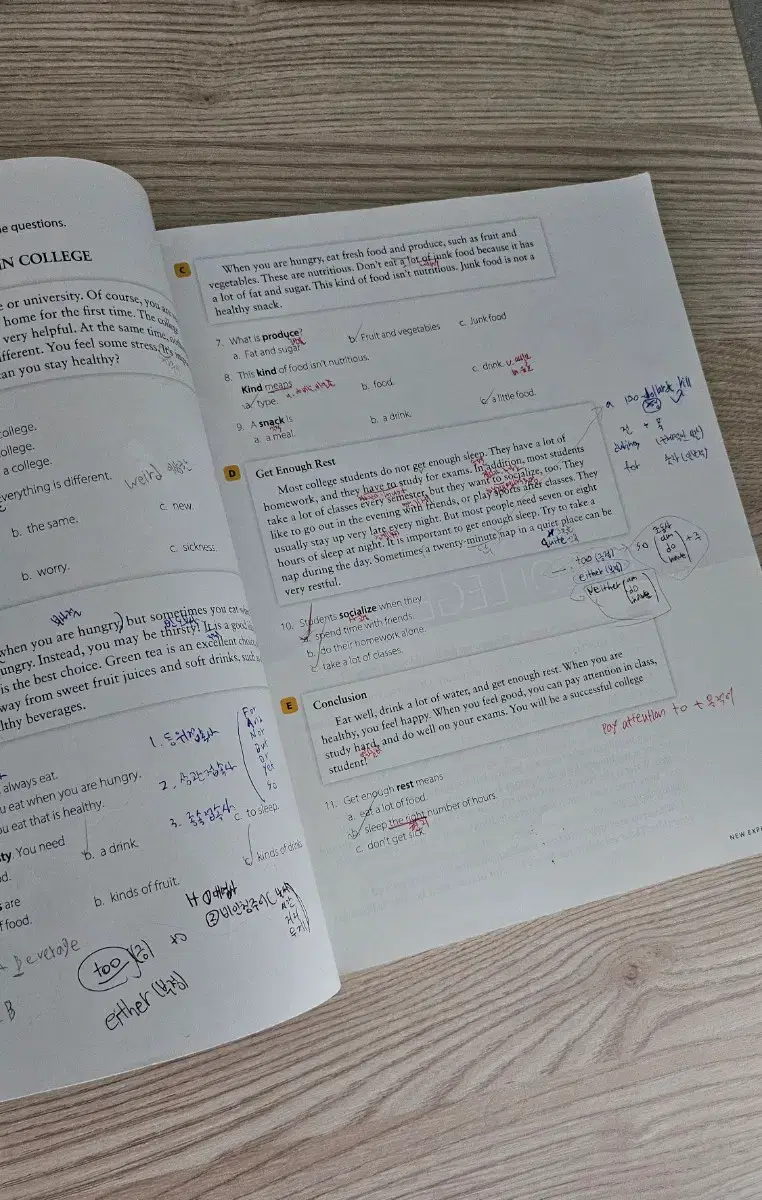 e questions.
IN COLLEGE
e or university. Of course, you
home for the first time. The college
very helpful. At the same time,
ifferent. You feel some stress.
an you stay healthy?
college.
ollege.
a college.
verything is different.
weird
b. the same.
c. new.
b. worry.
c. sickness.
when you are hungry, but sometimes you eat
ungry. Instead, you may be thirsty! It is a good
is the best choice. Green tea is an excellent
way from sweet fruit juices and soft drinks, such
lthy beverages.
always eat.
u eat when you are hungry.
ou eat that is healthy.
1. 등위접속사
2. 상관접속사
3. 종속접속사
For
And
Nor
But
Or
Yet
So
ty. You need
b. a drink.
c. to sleep.
d.
s are
b. kinds of fruit.
c. kinds of drink
f food.
+ Beverage
B
too
so
either (부정)
C
When you are hungry, eat fresh food and produce, such as fruit and
vegetables. These are nutritious. Don't eat a lot of junk food because it has
a lot of fat and sugar. This kind of food isn't nutritious. Junk food is not a
healthy snack.
7. What is produce?
a. Fat and sugar
b. Fruit and vegetables
c. Junk food
8. This kind of food isn't nutritious.
Kind means
a. type.
b. food.
c. drink.
9. A snack is
a. a meal.
b. a drink.
c. a little food.
D
Get Enough Rest
Most college students do not get enough sleep. They have a lot of
homework, and they have to study for exams. In addition, most students
take a lot of classes every semester, but they want to socialize, too. They
like to go out in the evening with friends, or play sports after classes. They
usually stay up very late every night. But most people need seven or eight
hours of sleep at night. It is important to get enough sleep. Try to take a
nap during the day. Sometimes a twenty-minute nap in a quiet place can be
very restful.
quite
during
for
too
either
Neither
am
do
have
so
am
do
have
10. Students socialize when they
a. spend time with friends.
b. do their homework alone.
c. take a lot of classes.
E
Conclusion
Eat well, drink a lot of water, and get enough rest. When you are
healthy, you feel happy. When you feel good, you can pay attention in class,
study hard, and do well on your exams. You will be a successful college
student!
pay attention to + 목적어
11. Get enough rest means
a. eat a lot of food.
b. sleep the right number of hours.
c. don't get sick.
NEW EXP